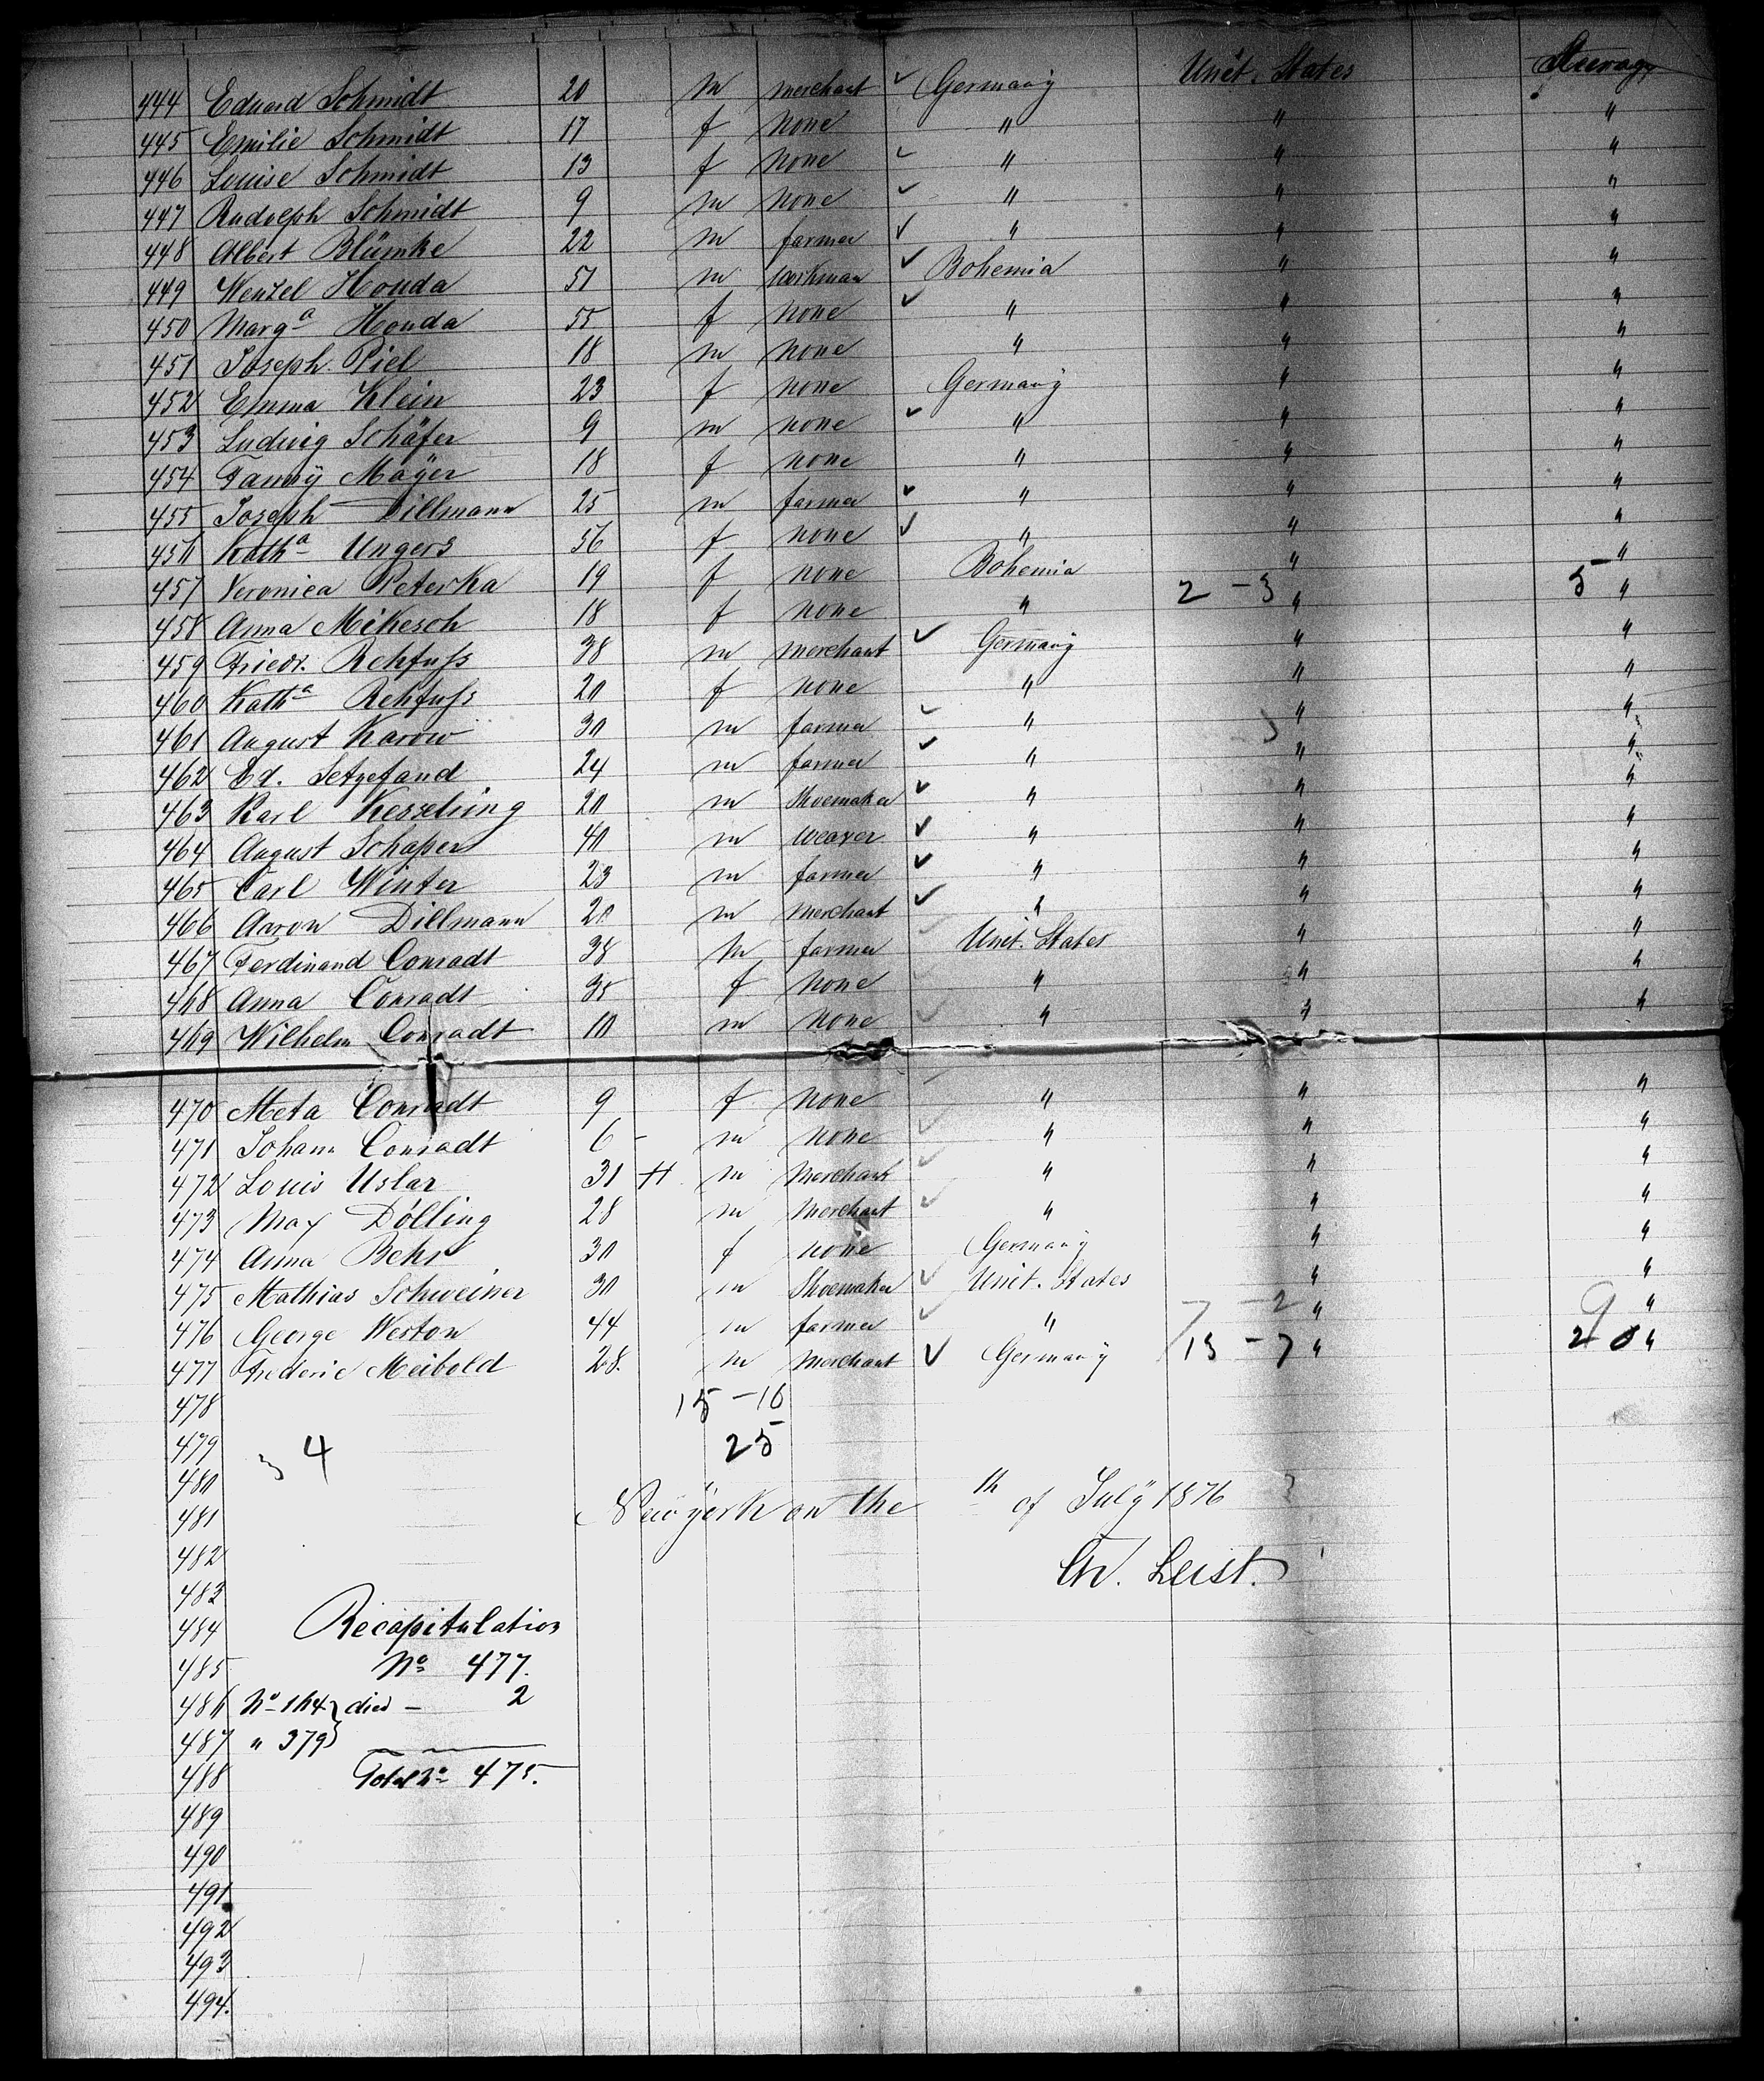 444 Eduard Schmidt 20 m merchant ✓ Germany Unit. States Steerage
445 Emilie Schmidt 17 f none " " "
446 Louise Schmidt 13 f none ✓ " " "
447 Rudolph Schmidt 9 m none ✓ " " "
448 Albert Blümke 22 m farmer ✓ " " "
449 Wenzel Houda 51 m workman ✓ Bohemia " "
450 Marg<sup>a</sup> Houda 55 f none ✓ " " "
451 Joseph Piel 18 m none " " "
452 Emma Klein 23 f none Germany " "
453 Ludwig Schäfer 9 m none ✓ " " "
454 Fanny Mayer 18 f none " " "
455 Joseph Dillmann 25 m farmer ✓ " " "
456 Kath<sup>a</sup> Ungers 56 f none ✓ " " "
457 Veronica Peterka 19 f none Bohemia " "
2 - 3 5
458 Anna Mikesch 18 f none " " "
459 Friedr. Rehfuſs 38 m merchant ✓ Germany " "
460 Kath<sup>a</sup> Rehfuſs 20 f none " " "
461 August Karow 30 m farmer ✓ " " "
462 Ed. Setzefand 24 m farmer ✓ " " "
463 Karl Kesselring 20 m Shoemaker ✓ " " "
464 August Schaper 40 m weaver ✓ " " "
465 Carl Winter 23 m farmer ✓ " " "
466 Aaron Dillmann 20 m merchant ✓ " " "
467 Ferdinand Conradt 38 m farmer ✓ Unit. States " "
468 Anna Conradt 35 f none ✓ " " "
469 Wilhelm Conradt 10 m none ✓ " " "
470 Meta Conradt 9 f none ✓ " " "
471 Johann Conradt 6 - m none ✓ " " "
472 Louis Uslar 31 H m merchant ✓ " " "
473 Max Dölling 28 m merchant ✓ " " "
474 Anna Behr 30 f none Germany " "
475 Mathias Schweiner 30 m Shoemaker ✓ Unit. States " "
7 - 2 9
476 George Weston 44 m farmer ✓ " " "
477 Frederic Meibold 28. m merchant ✓ Germany 13 - 7 " 20 "
478 15 - 10
479 4 25
480
481 Newyork on the th of July 1876
482 Ch. Leist.
483
484 Recapitulation
485 No 477.
486 No 164 } died - 2
487 " 379 }
488 Total No 475.
489
490
491
492
493
494.